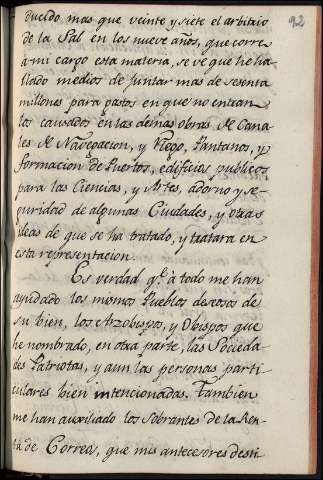 92
ducido mas que veinte y siete el arbitrio
de la Sal en los nueve años, que corre
à mi cargo esta materia, se ve que he ha
llado medios de juntar mas de sesenta
millones para gastos en que no entran
los causados en las demas obras de Cana
les de Navegacion, y Riego, Pantanos, y
formacion de Puertos, edificios publicos
para las Ciencias, y Artes, adorno y se-
guridad de algunas Ciudades, y otras
ideas de que se ha tratado, y tratara en
esta representacion.
Es verdad q.e à todo me han
ayudado los mismos Pueblos deseosos de
su bien, los Arzobispos, y Obispos que
he nombrado, en otra parte, las Socieda
des Patriotas, y aun las personas parti
culares bien intencionadas. Tambien
me han auxiliado los Sobrantes de la Ren-
ta de Correos, que mis antecesores desti-